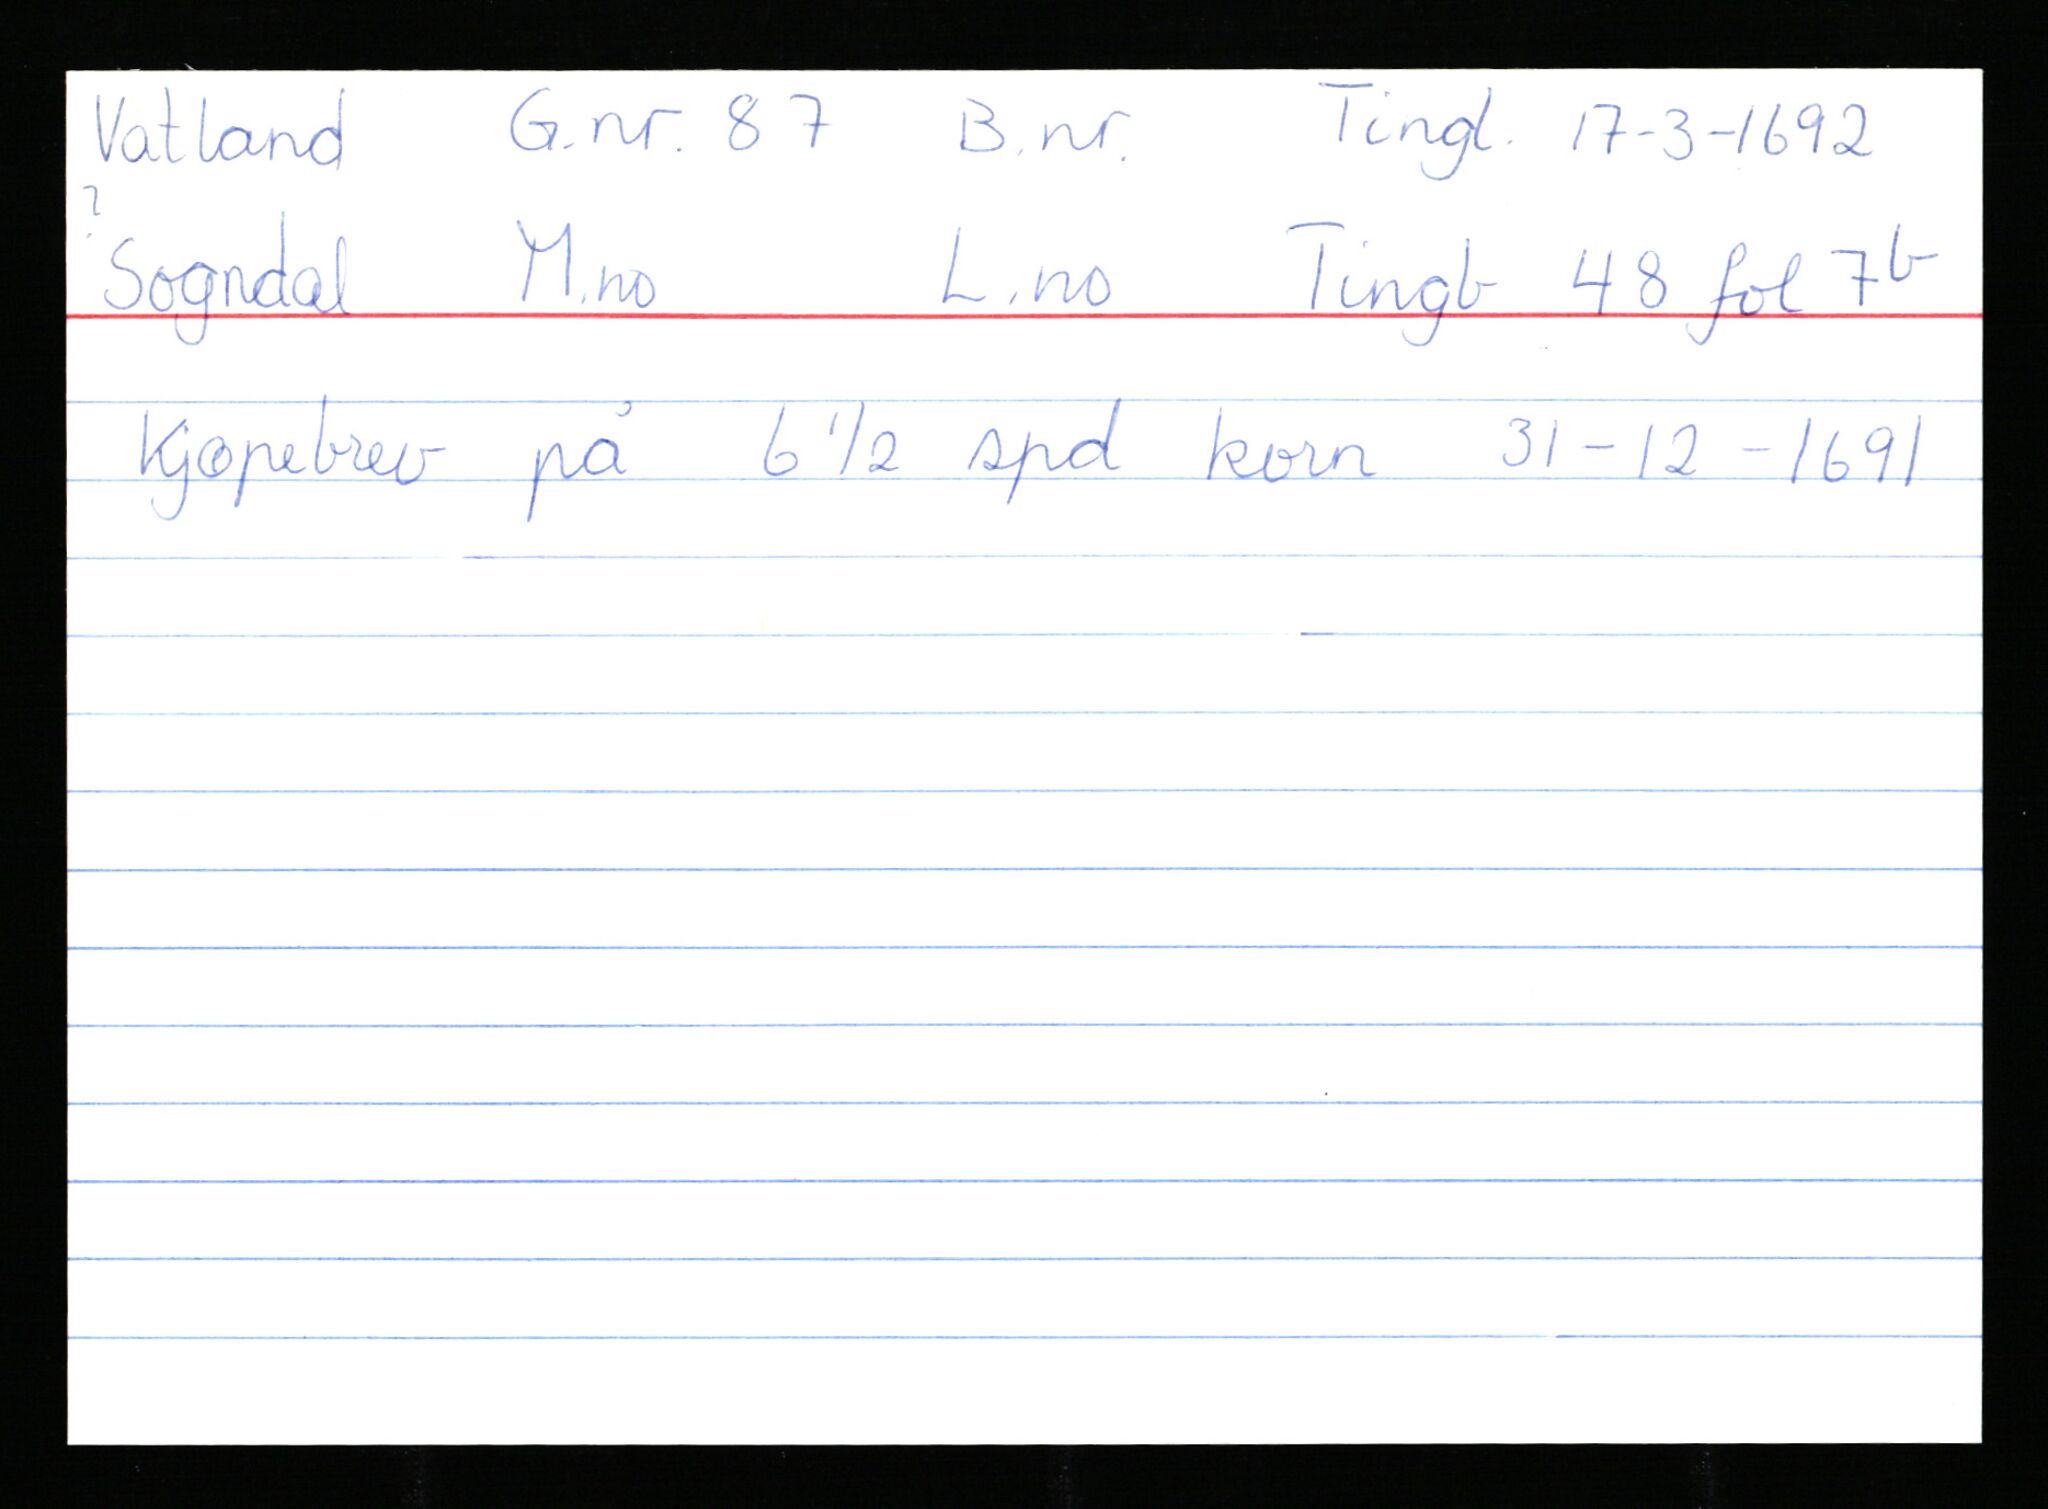 Vatland G.nr. 87 B.nr. Tingl. 17-3-1692
?
Sogndal M.no L.no Tingb 48 fol 7b
Kjøpebrev på 6 1/2 spd korn 31-12-1691